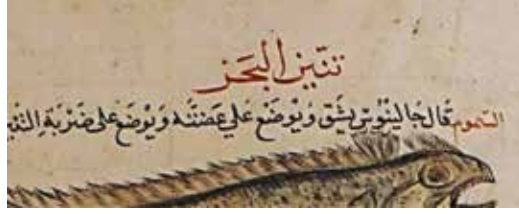 تنين البحر
السموم قال جالينوس يشق ويوضع علي عضته ويوضع على ضربة التنين